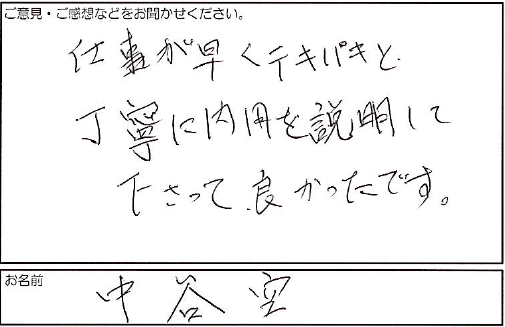 ご意見・ご感想などをお聞かせください。
仕事が早くテキパキと
丁寧に内用を説明して
下さって良かったです。
お名前
中谷空